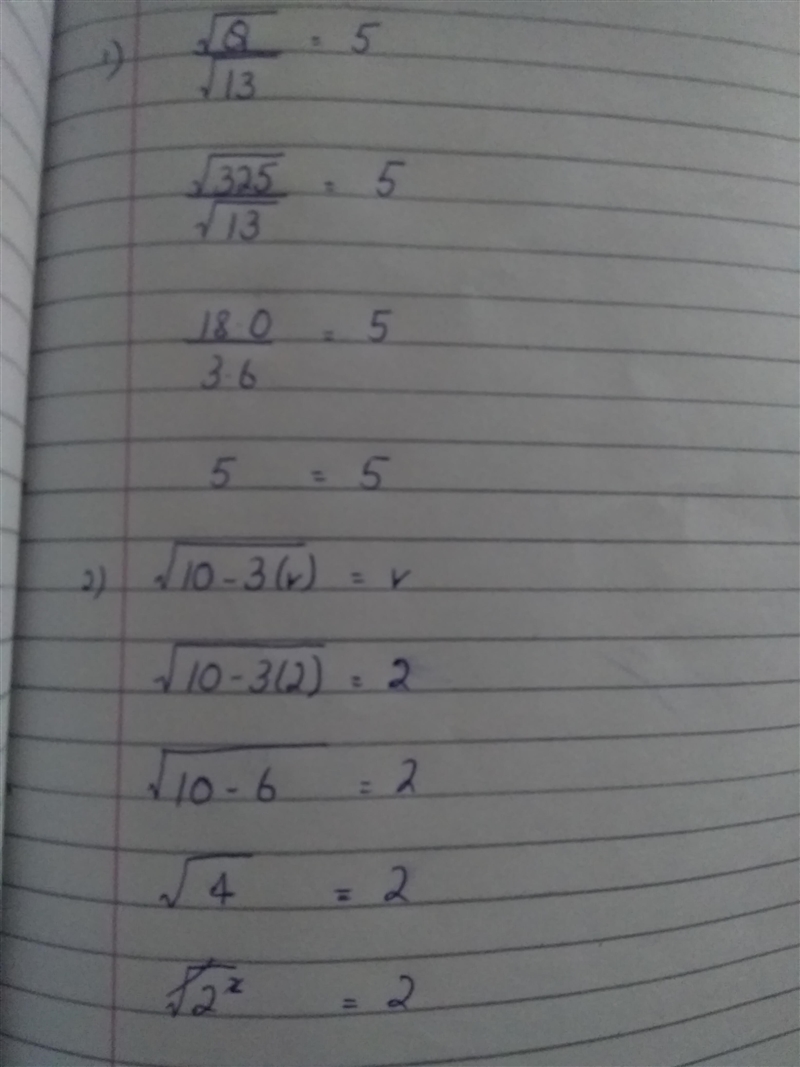 1) √Q/√13 = 5
√325/√13 = 5
18.0/3.6 = 5
5 = 5
2) √10 - 3(r) = r
√10 - 3(2) = 2
√10 - 6 = 2
√4 = 2
√2² = 2